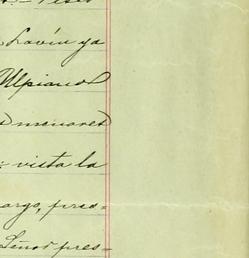 Lavín ya
Ulpiano
menores
vista la
argo, pres=
Señor pres=